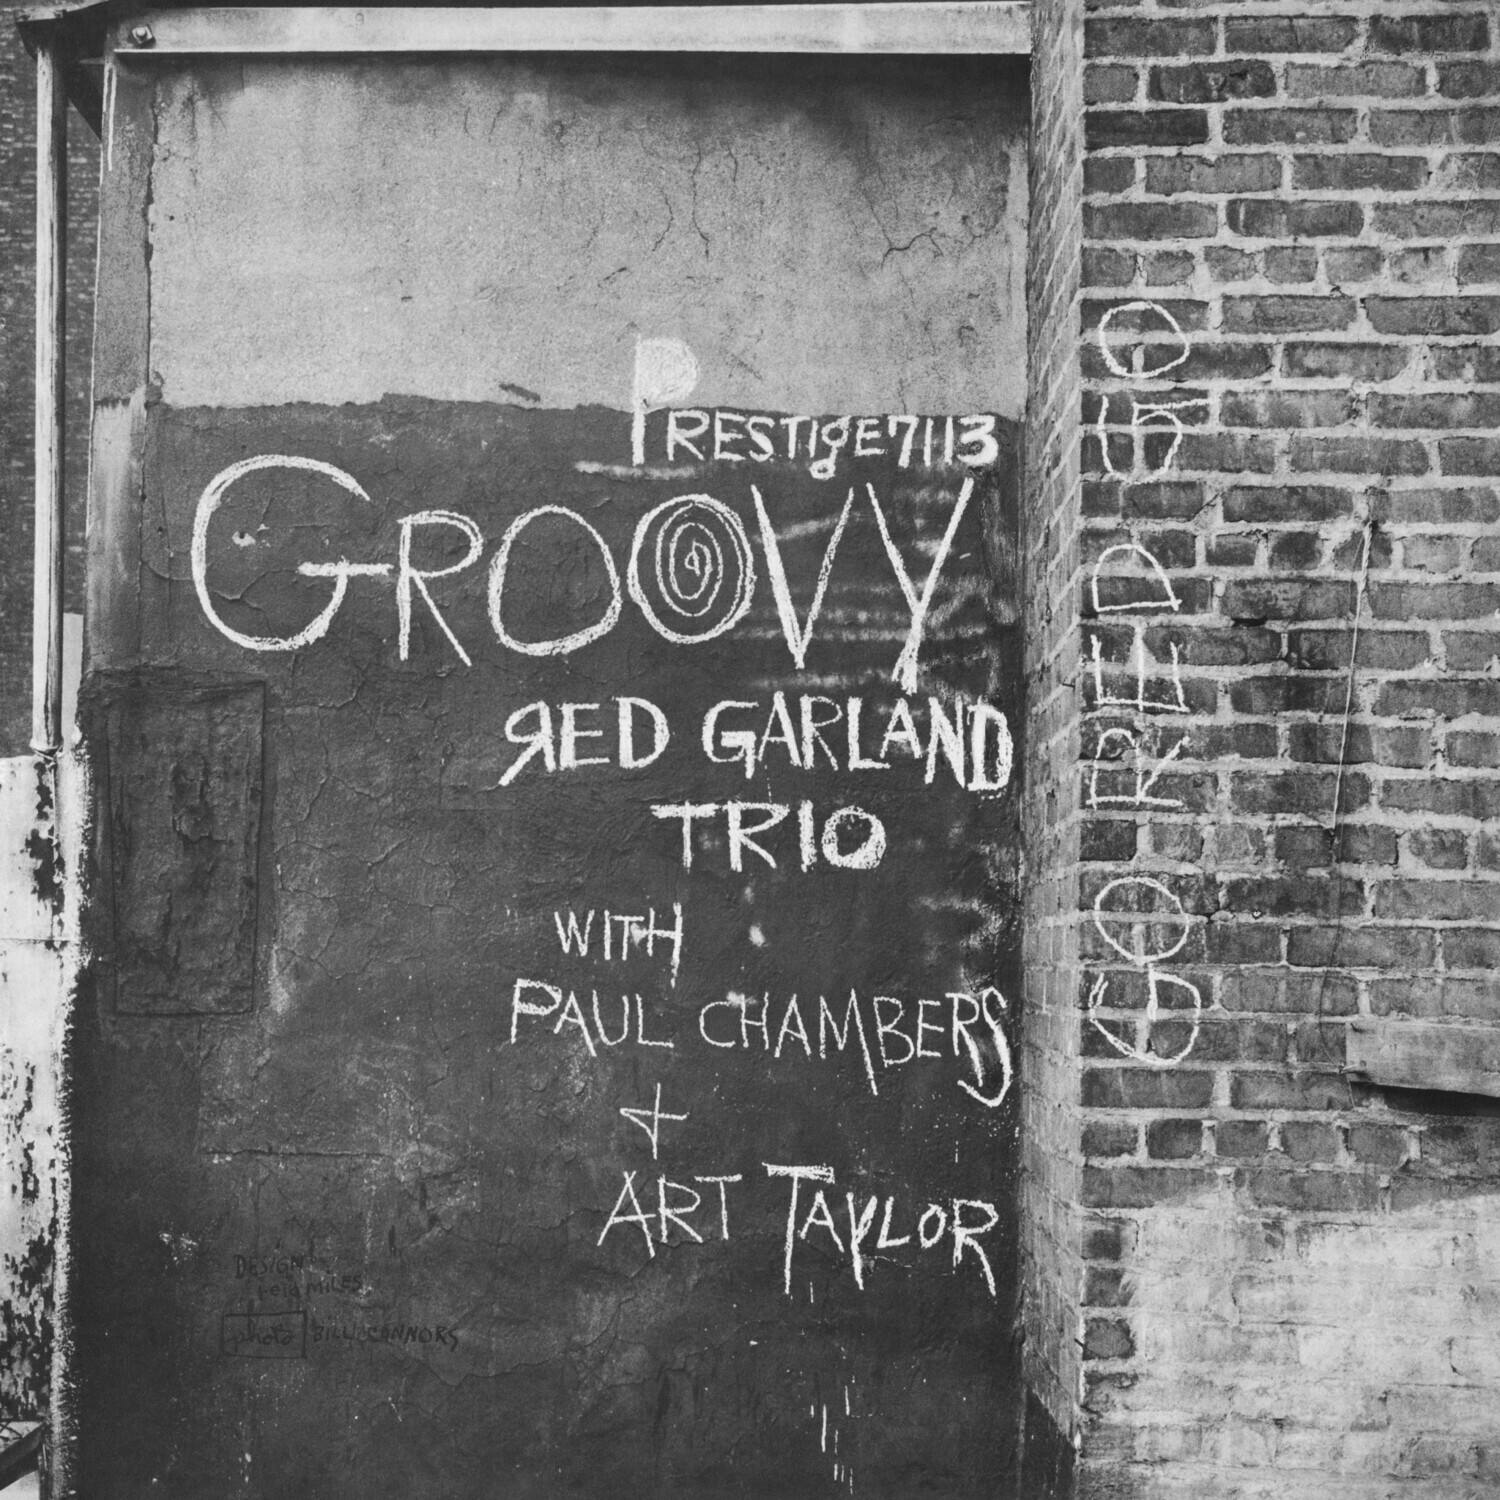 PRESTIgE7113
GROOVY
RED GARLAND
TRIO
WITH
PAUL CHAMBERS
+
ART TAYLOR
GO RED GO
DESIGN
reid MILES
photo CONNORS